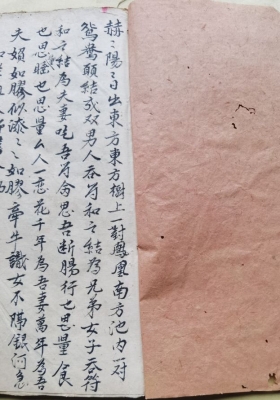 赫〻陽〻日出東方東方樹上一對鳳凰南方池内一对
鴛鴦頭結成双男人吞符和合結為兄弟女子吞符
和合結為夫妻吃吾符会思吾断腸行也思量食
也思睡也思量么人一恋花千年為吾妻萬年為吾
夫娘如膠似漆〻〻如膠牽牛識女不隔銀河急